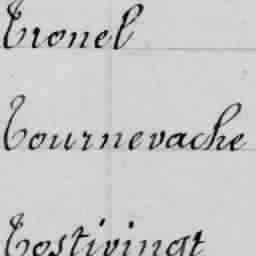 Tronel
Tournevache
Tostivingt